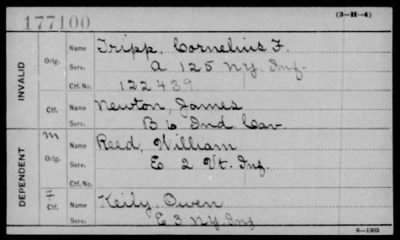 177100
(3-H-4)
INVALID
Orig.
Name Tripp, Cornelius F.
Serv. A 125 NY. Inf.
Ctf. No. 122439
Ctf.
Name Newton, James
Serv. B 6 Ind Cav
DEPENDENT
m
Orig.
Name Reed, William
Serv. E 2 Vt. Inf.
Ctf. No.
Ctf.
Name Keily, Owen
Serv. E 3 NY Inf